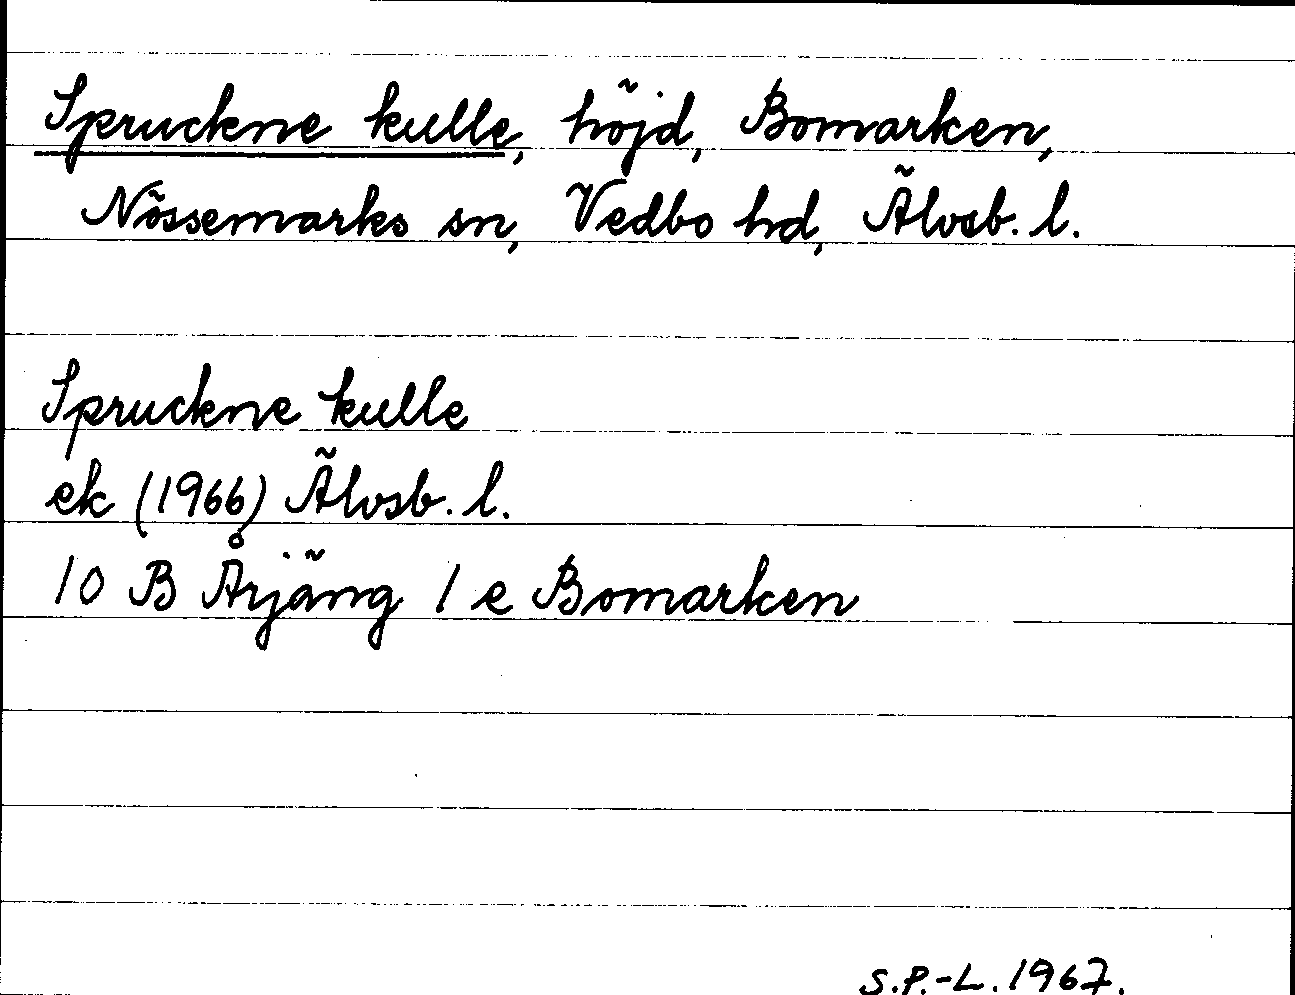 Spruckne kulle, höjd, Bomarken,
Nössemarks sn, Vedbo hd, Älvsb. l.
Spruckne kulle
ek (1966) Älvsb. l.
10 B Årjäng 1 e Bomarken
S.P.-L. 1967.